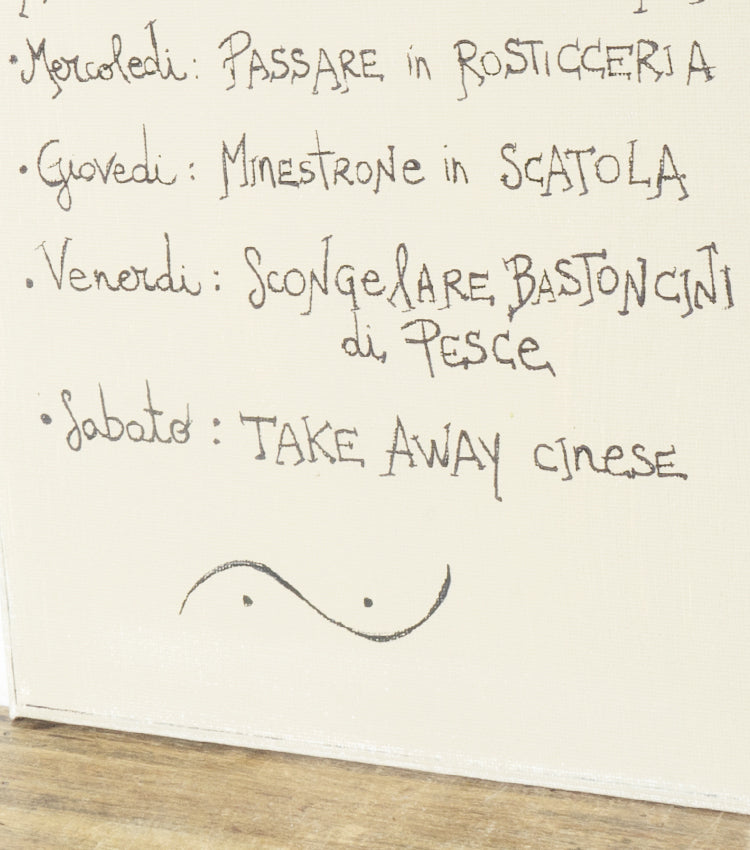 • Mercoledi: PASSARE in ROSTICCERIA
• Giovedi: MINESTRONe in SCATOLA
• Venerdi: SCONGelARE BASTONCINI
di PESCe
• Sabato: TAKE AWAY cInese